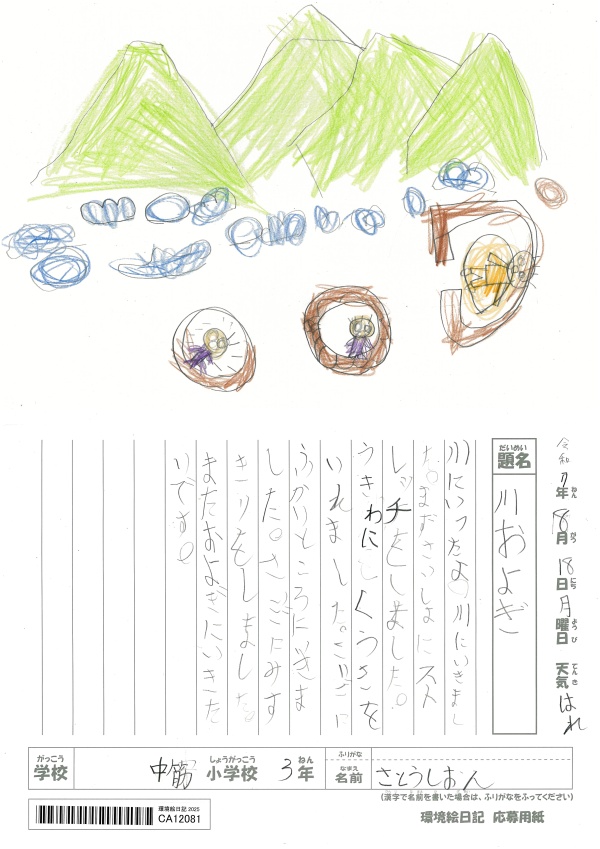 令和7年8月18日月曜日 天気はれ
ねん がつ にち ようび てんき
だいめい
題名
川およぎ
川にいったよ川にいきまし
た。まずさいしょにスト
レッチをしました。
うきわにくうきを
いれました。さいごに
ふかいところにいきま
した。さいごにみず
きりをしました
またおよぎにいきた
いです。
がっこう しょうがっこう ねん
学校 中筋小学校 3年
ふりがな
なまえ
名前 さとうしおん
(漢字で名前を書いた場合は、ふりがなをふってください)
環境絵日記 2025
CA12081
環境絵日記 応募用紙